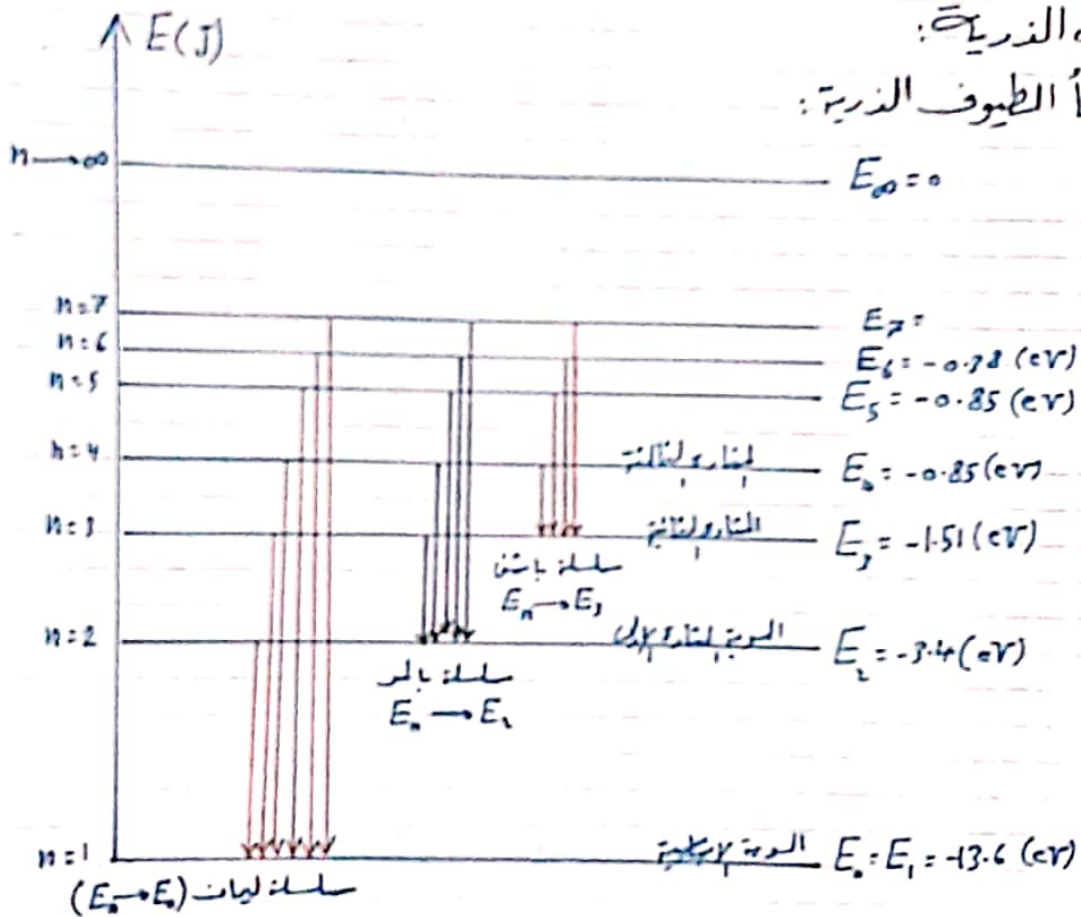 الذرية:
أ الطيوف الذرية:
E(J)
n→∞ E∞ = 0
n=7 E₇ =
n=6 E₆ = -0.38 (eV)
n=5 E₅ = -0.85 (eV)
n=4 E₄ = -0.85 (eV)
n=3 المثارة الثانية E₃ = -1.51 (eV)
سلسلة باشن
Eₙ → E₃
n=2 السوية المثارة الأولى E₂ = -3.4 (eV)
سلسلة بالمر
Eₙ → E₂
n=1 السوية الأساسية E₀ = E₁ = -13.6 (eV)
سلسلة ليمان (Eₙ→E₀)